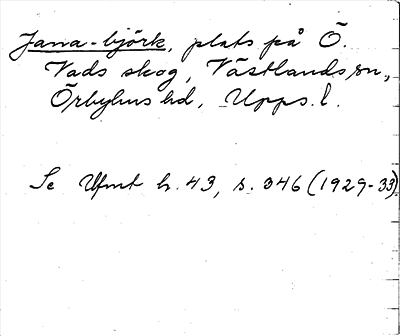 Jana-björk, plats på Ö.
Vads skog, Västlands sn,
Örbyhus hd, Upps. l.
Se Ufmt h. 43, s. 346 (1929-33)